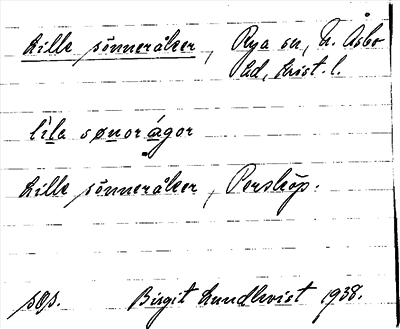 Lille sönneråker, Rya sn, N. Åsbo
hd, Krist. l.
lila sønorágor
Lille sönneråker, Perstorp.
søs. Birgit Lundkvist 1938.